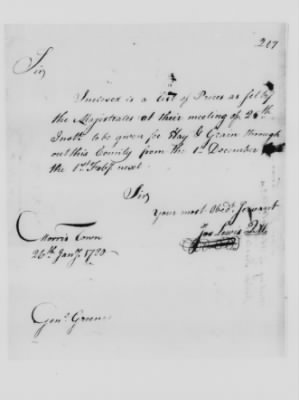 217
Sir
Inclosed is a list of Prices as fix'd by
the Magistrates at their meeting of 20th
Instt. to be given for Hay & Grain through
out this County from the 1st December
the 1st Feby. next
Sir
Your most Obedt. Servant
Jos Lewis
Morris Town
26th Jany. 1780
Genl. Greene